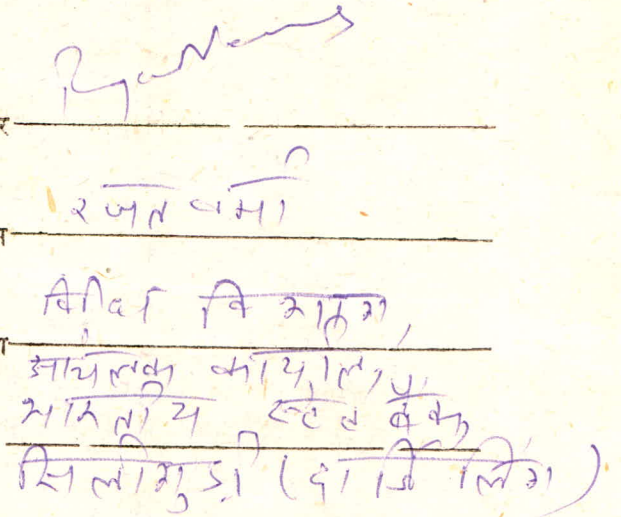 रजत वर्मा
विभाग,
आंचलिक कार्यालय,
भारतीय स्टेट बैंक,
सिलीगुड़ी (दार्जिलिंग)